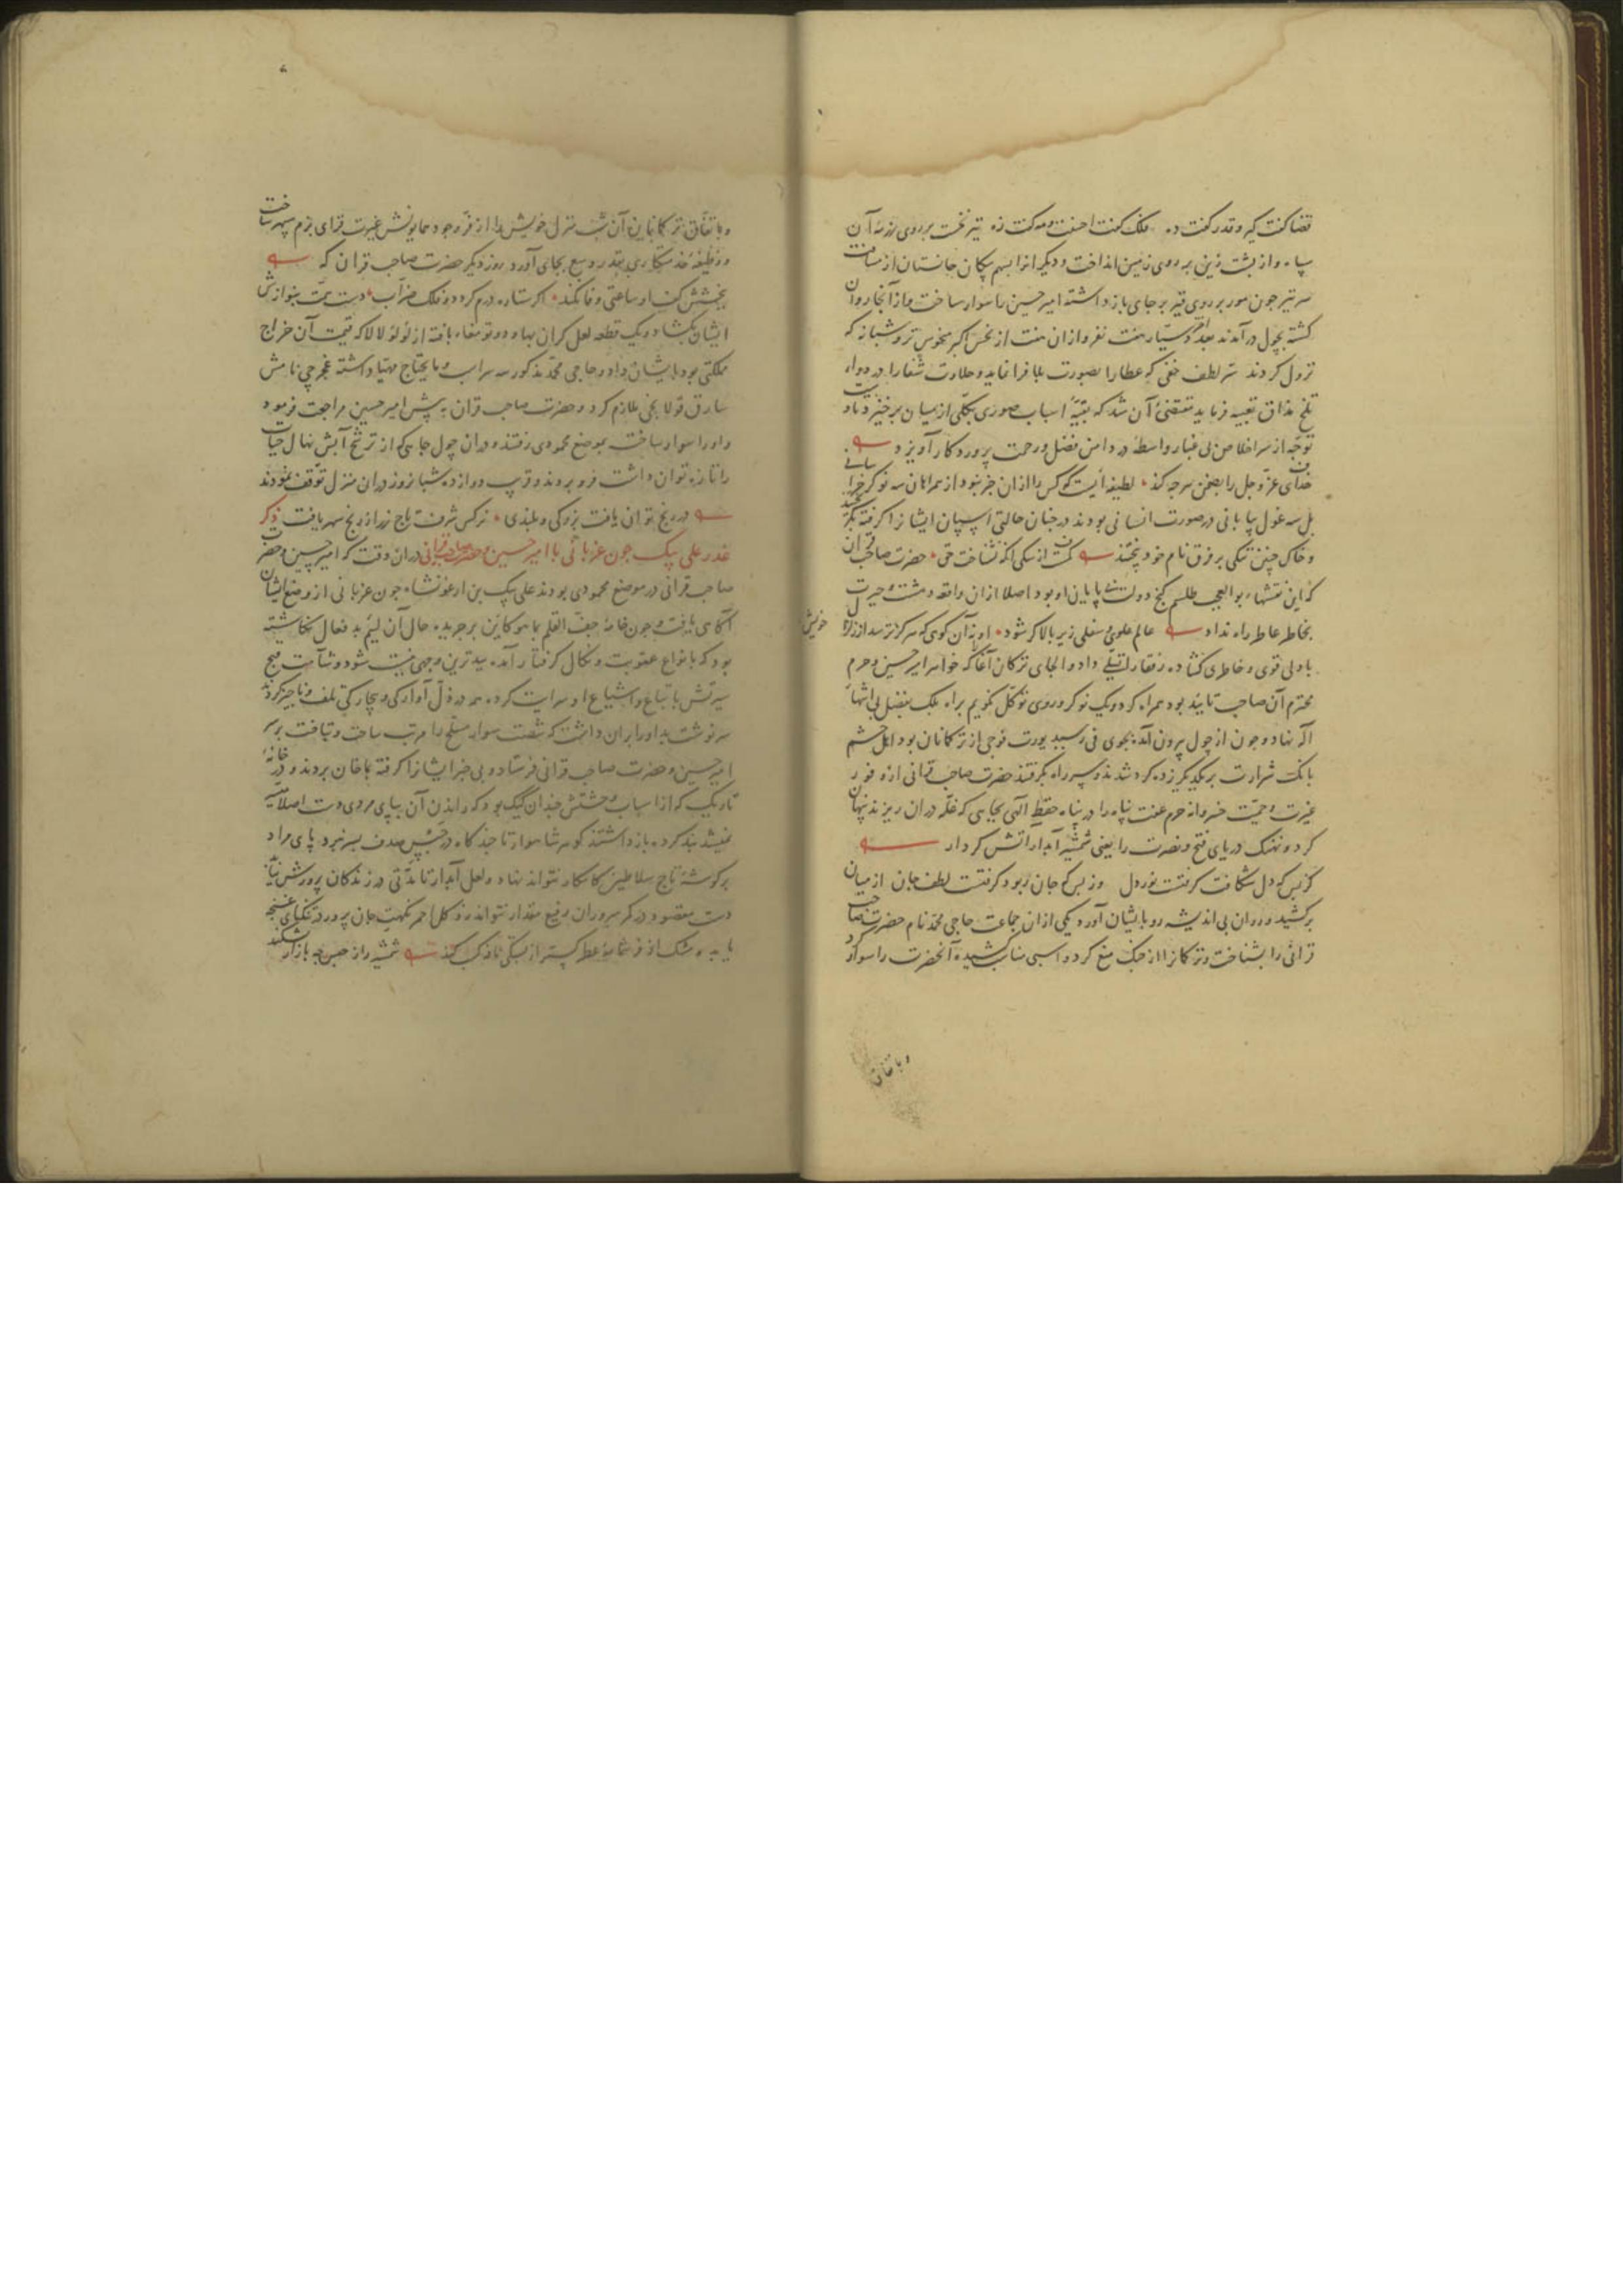 قضا کفت کیر و قدر کفت ده فلک کفت احسنت و مه کفت زه تیر تخت بر روی آن
سپاه و از پشت زین بر روی زمین انداخت و دیکر انرا بسهم پیکان جانستان از مسافت
سر تیر جون مور بر روی قیر بر جای باز داشته امیر حسین را سوار ساخت و از آنجا روان
کشته بچول در آمدند هفت نفر و از ان هفت از نحس اکبر منحوس تر و شبانه که
نزول کردند سر لطف خفی که عطا را بصورت بلا فرا نماید و حلاوت شفا را در دواء
تلخ مذاق تعبیه فرماید مقتضی آن شد که بقیهٔ اسباب صوری بکلی از میان برخیزد تا دست
توجه از سر اخلاص بی غبار واسطه در دامن فضل و رحمت پروردکار آویزد
خدای عز و جل را بضمن هرجه کند لطیفه ایست که کس را از ان خبر نبود از همراهان سه نوکر خراسانی
بل سه غول بیابانی در صورت انسانی بودند در جنان حالتی اسپان ایشانرا کرفته بکریختند
و خاک جنین ننکی بر فرق نام خود بیختند کمست از سکی انکه نشناخت حق حضرت صاحب قران
که این نقشهاء بوالعجب طلسم کنج دولت بی پایان او بود اصلا از ان واقعه دهشت و حیرت
بخاطر عاطر راه نداد عالم علوی و سفلی زیر و بالا کر شود او نه آن کوهی که هرکز ترسد از زلزال
خویش
با دلی قوی و خاطری کشاده رفقا را تسلی داد و الجای ترکان آغا که خواهر امیر حسین و حرم
محترم آن صاحب تایید بود همراه کرده و یک نوکر و روی توکل نکویم براه بلک بفضل بی انتهاء
اله نهاد و جون از چول بیرون آمده بجوی فی رسید یورت فوجی از ترکمانان بود اهل حشم
بانک شرارت بر یکدیکر زده کرد شدند و سر راه بکرفتند حضرت صاحب قرانی از وفور
غیرت و حمیت خسروانه حرم عفت پناه را در پناه حفظ الهی بجایی که غله دران ریزند پنهان
کرد و نهنک دریای فتح و نصرت را یعنی شمشیر آبدار اتش کردار
کز بس که دل شکافت کرفتست نور دل وز بس که جان ربود کرفتست لطف جان از میان
برکشید و روان بی اندیشه رو بایشان آورد یکی ازان جماعت حاجی محمد نام حضرت صاحب
قرانی را بشناخت و ترکمانرا از جنک منع کرد و اسبی مناسب کشیده آنحضرت را سوار کرد
و باتفاق
و باتفاق ترکمانان آن شب منزل خویش را از فر وجود همایونش غیرت فزای بزم سپهر ساخت
و وظیفهٔ خدمتکاری بقدر وسع بجای آورد روز دیکر حضرت صاحب قران که
ببخشش کف او ساعتی وفا نکند اکر ستاره درم کردد و فلک ضراب دست همت بنوازش
ایشان بکشاد و یک قطعه لعل کران بها و دو تو بافته از لؤلؤ لالا که قیمت آن خراج
مملکتی بود بایشان داد و حاجی محمد مذکور سه سر اسب و مایحتاج مهیا داشته غجرچی نامش
سارق قولانجی ملازم کرد و حضرت صاحب قران به پیش امیر حسین مراجعت فرمود
و او را سوار ساخت بموضع محمودی رفتند و دران چول جاهی که از ترشح آبش نهال حیات
را تازه توان داشت فرو بردند و قریب دوازده شبانروز دران منزل توقف نمودند
در رنج توان یافت بزرکی و بلندی نرکس شرف تاج زر از رنج سهر یافت ذکر
غدر علی بیک جون غربانی با امیر حسین و حضرت صاحب قرانی دران وقت که امیر حسین و حضرت
صاحب قرانی در موضع محمودی بودند علی بیک بن ارغونشاه جون غربانی از وضع ایشان
آکاهی یافت و جون خامهٔ جف القلم بما هو کاین بر جریدهٔ حال آن لئیم بد فعال نکاشته
بود که بانواع عقوبت و نکال کرفتار آمده ببدترین وجهی نیست شود و شآمت قبح
سیرتش باتباع و اشیاع او سرایت کرده همه در ذل آوارکی و بیچارکی تلف و ناچیز کردند
سرنوشت بد او را بران داشت که شصت سوار مسلح را مرتب ساخت و بتاخت بر سر
امیر حسین و حضرت صاحب قرانی فرستاد و بی خبر ایشانرا کرفته بماخان بردند و در خانهٔ
تاریک که از اسباب وحشتش جندان کیک بود که راندن آن بپای مردی دست اصلا میسر
نمیشد بند کرده باز داشتند کوهر شاهوار تا جند کاه در حبس صدف بسر نبرد پای مراد
بر کوشهٔ تاج سلاطین کامکار نتواند نهاد و لعل آبدار تا مدتی در زندان کان پرورش نیابد
دست مقصود در کمر سروران رفیع مقدار نتواند زد کل احمر نکهت جان پرور در تنکنای غنچه
یابد و مشک اذفر شمامهٔ عطر کستر از بستکی نافه کسب کند شمشیر را از حبس جه بازار بشکند